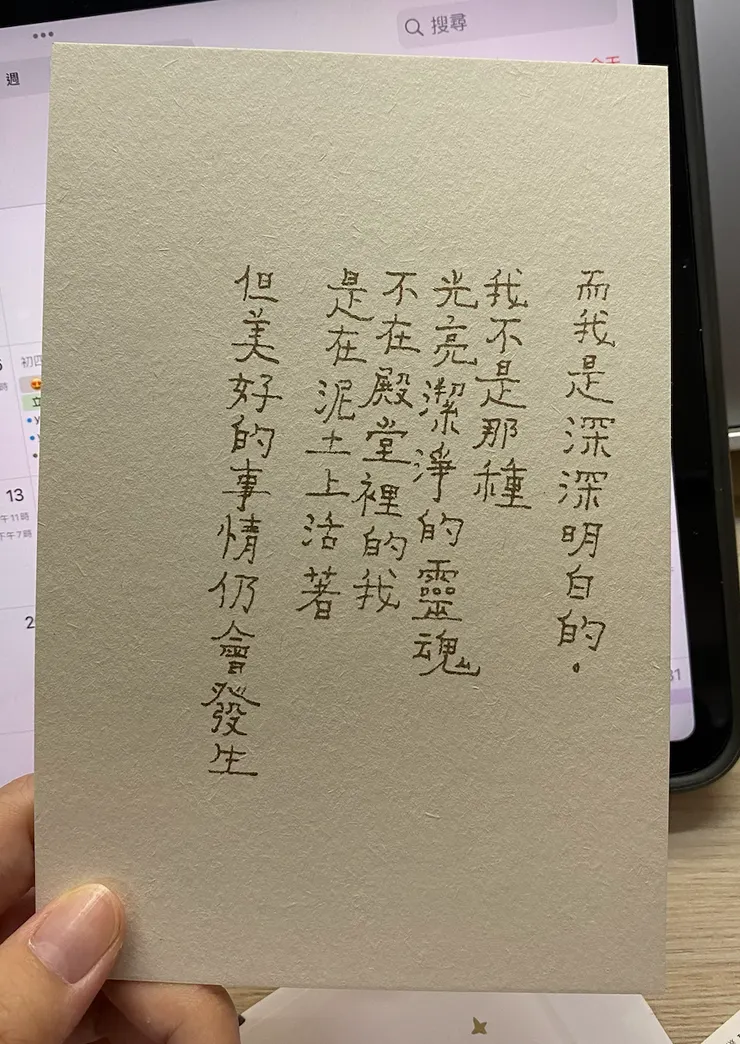 而我是深深明白的.
我不是那種
光亮潔淨的靈魂
不在殿堂裡的我
是在泥土上活著
但美好的事情仍會發生
搜尋
週
今天
初四
13
午11時
下午7時
2
31